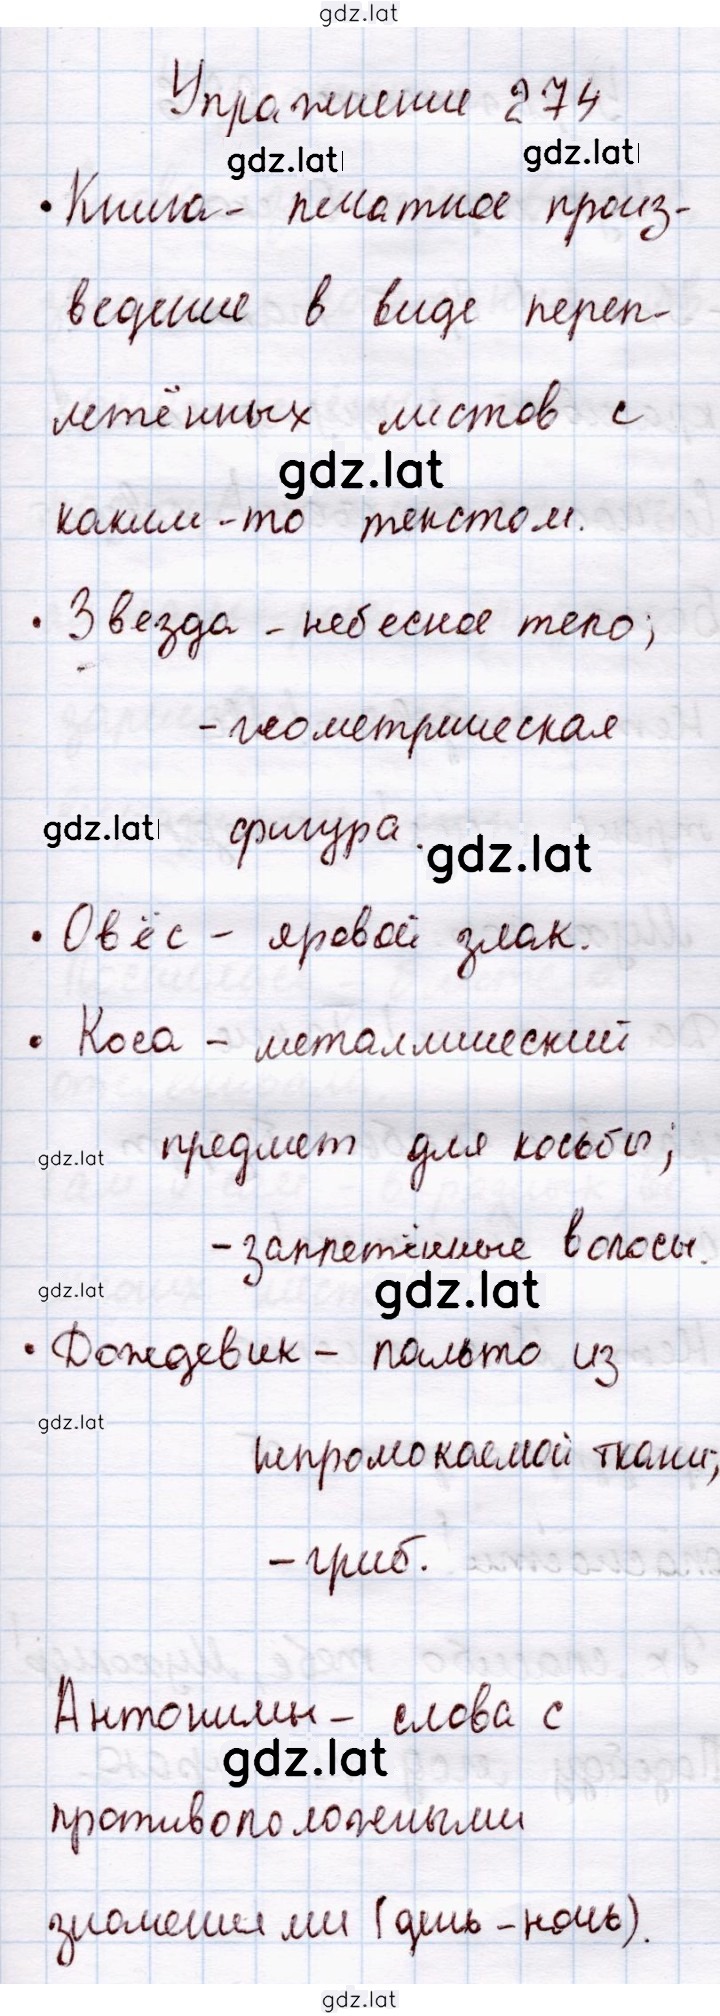 gdz.lat
Упражнение 274
gdz.lat gdz.lat
• Книга - печатное произ-
ведение в виде переп-
летённых листов с
gdz.lat
каким-то текстом.
• Звезда - небесное тело;
- геометрическая
gdz.lat фигура.
gdz.lat
• Овёс - яровой злак.
• Коса - металлический
gdz.lat предмет для косьбы;
- заплетённые волосы.
gdz.lat gdz.lat
• Дождевик - пальто из
gdz.lat
непромокаемой ткани;
- гриб.
Антонимы - слова с
gdz.lat
противоположными
значениями (день - ночь).
gdz.lat